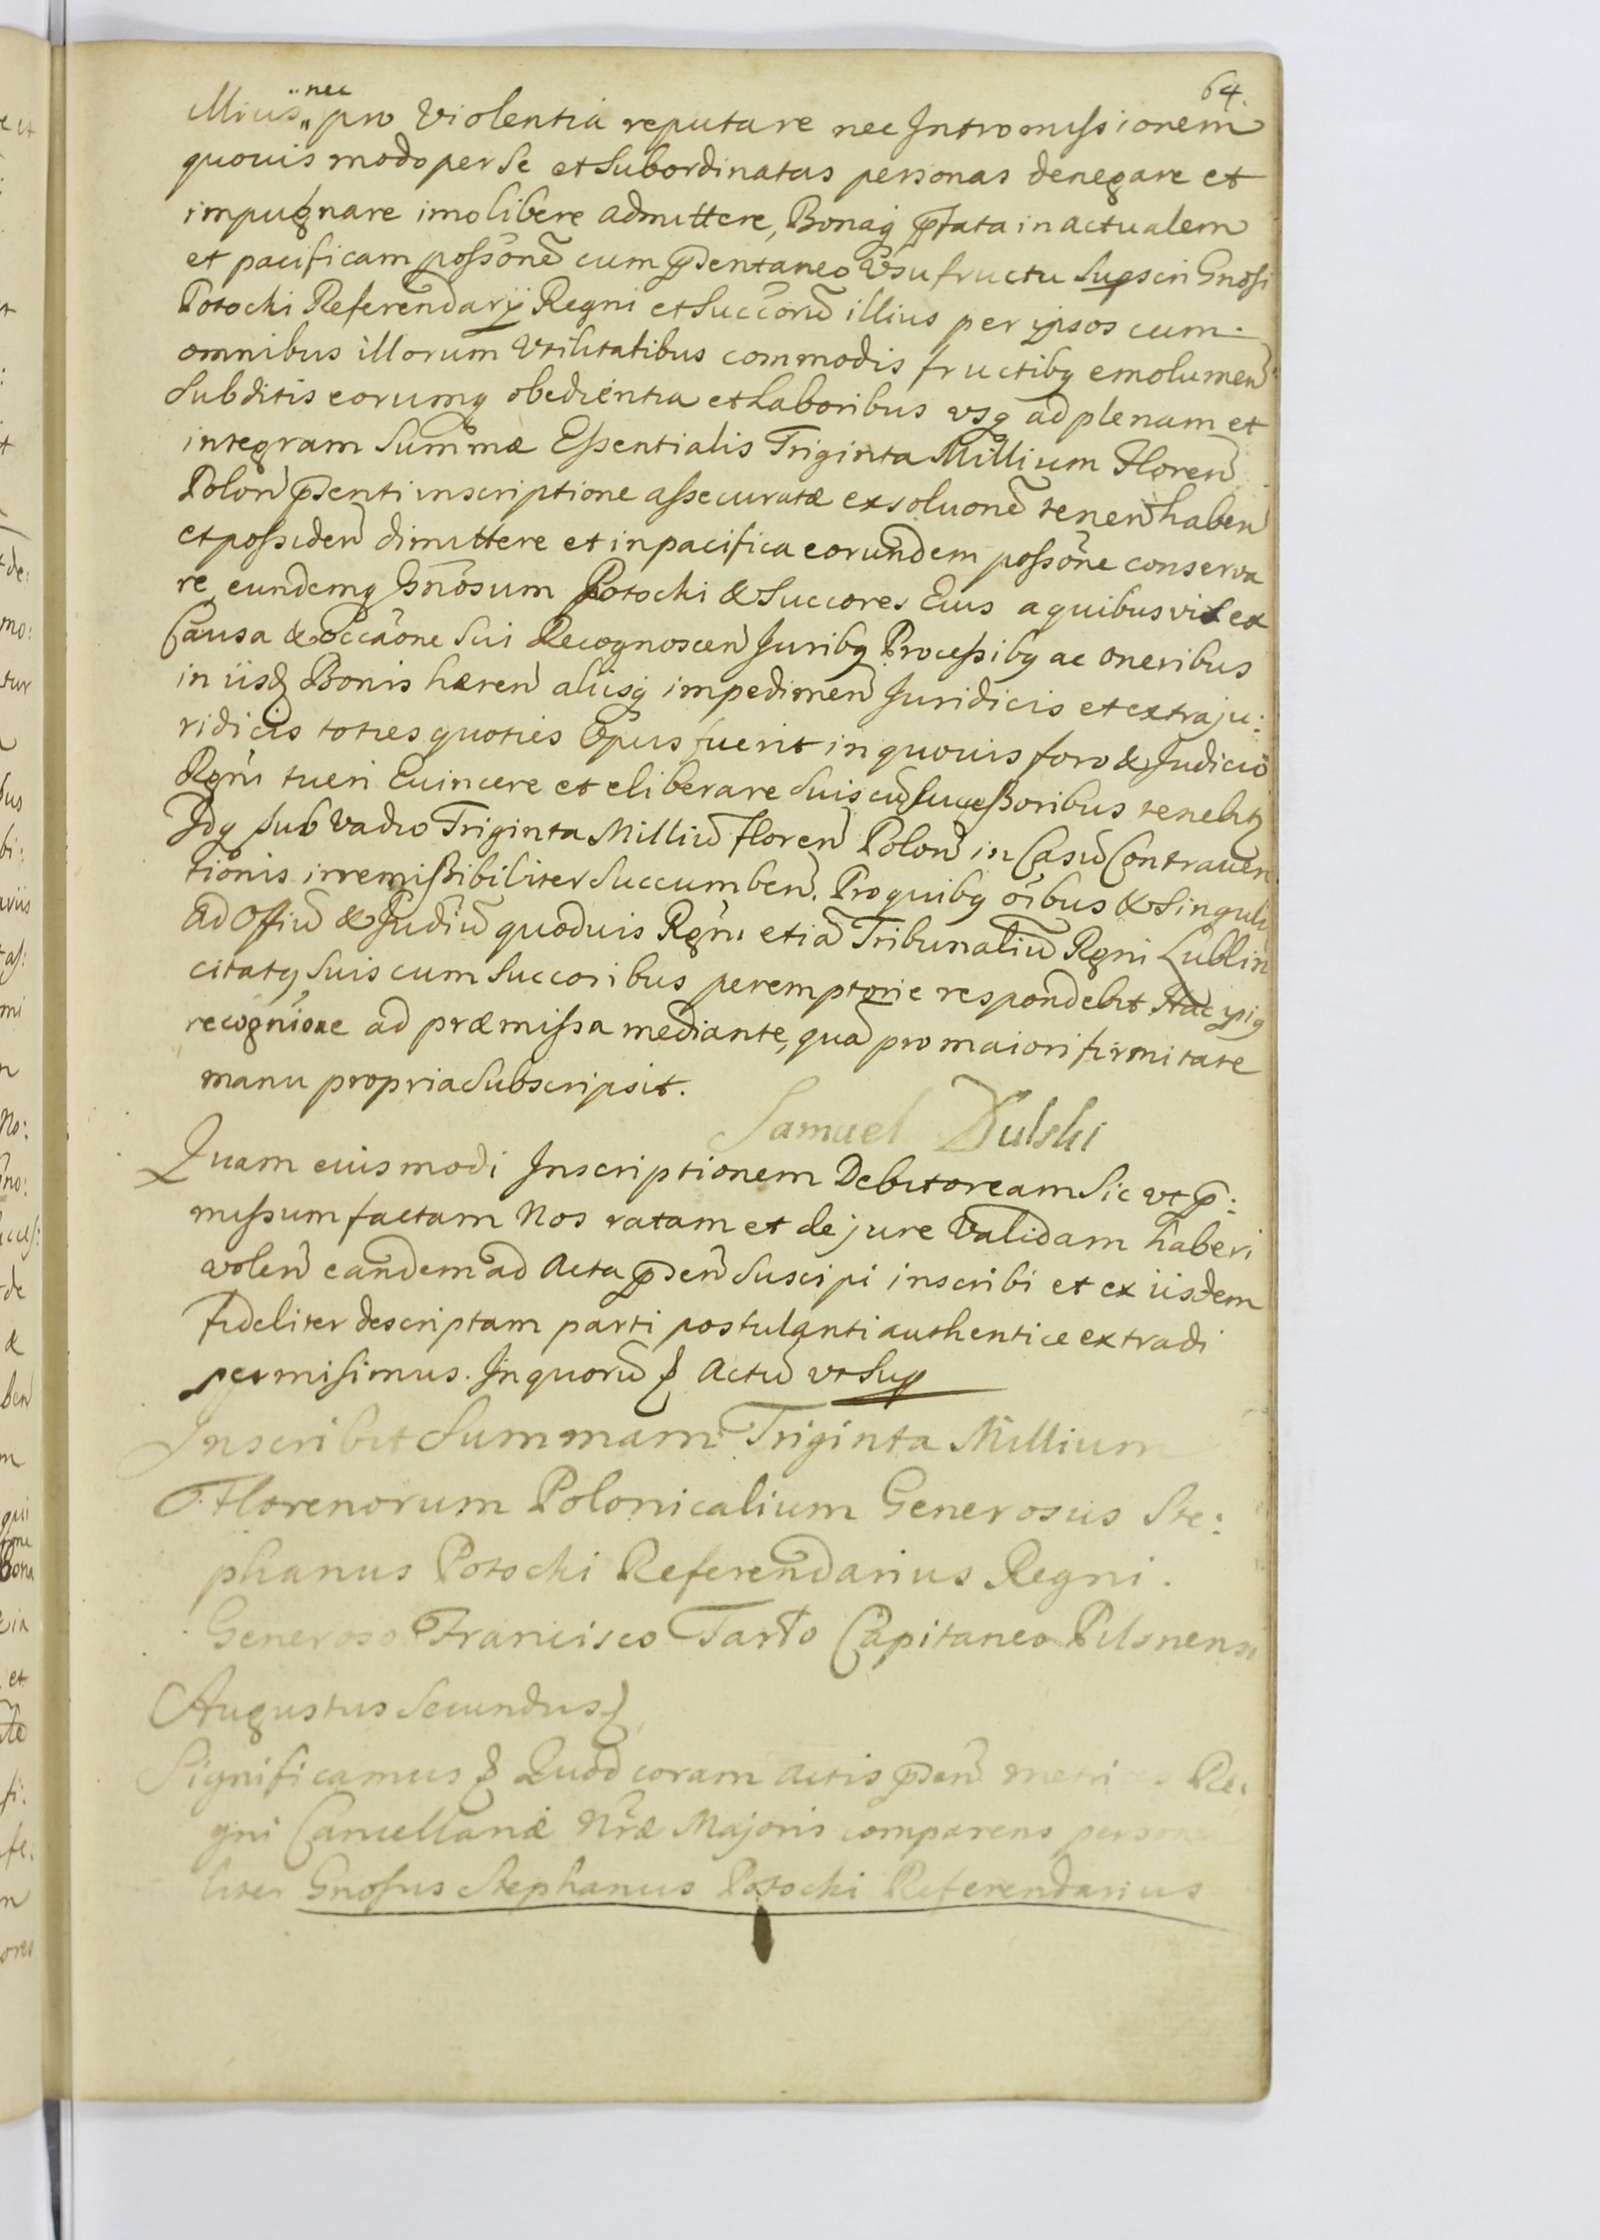 64.
Illius nec pro Violentia reputare nec Intromissionem
quovis modo per se et Subordinatas personas denegare et
impugnare imo libere admittere, Bonaq̃ p̃fata in actualem
et pacificam possonẽ cum p̃dentaneo Usufructu Supscri Gnosi
Potocki Referendarÿ Regni et Succorũ illius per ipsos cum
omnibus illorum Utilitatibus commodis fructibq emolumen̄
Subditis eorumq obedientia et Laboribus usq ad plenam et
integram Summæ Essentialis Triginta Millium Floren̄
Polon̄ p̃denti inscriptione assecuratæ exsoluonẽ tenen̄ haben̄
et possiden̄ dimittere et in pacifica eorundem possõne conserva
re, eundemq Gnõsum Potocki & Succores Eius a quibusvis ex
Causa & occãone Sui Recognoscen̄ Juribq Processibq ac oneribus
in iisd̃ Bonis hæren̄ aliisq̃ impedimen̄ Juridicis et extraju:
ridicis toties quoties Opus fuerit in quovis foro & Judicio
Rgñi tueri Evincere et eliberare Suis cũ Successoribus tenebit̃
Idq sub Vadio Triginta Milliũ floren̄ Polon̄ in Casũ Contraven
tionis irremissibiliter Succumben̄. Pro quibq oĩbus & Singulis
ad Offiũ & Judiũ quoduis Rgñi etiã Tribunaliũ Rgni Lublin
citatq Suis cum Succoribus peremptorie respondebit Hac ipiq
recogniõne ad præmissa mediante, quã pro maiori firmitate
manu propria Subscripsit.
Samuel Dulski
Quam eiusmodi Inscriptionem Debitoream Sic ut p̃:
missum factam Nos ratam et de jure Validam haberi
volen̄ eandem ad Acta p̃den̄ Suscipi inscribi et ex iisdem
fideliter descriptam parti postulanti authentice extradi
permisimus. In quorũ & Actũ ut Sup
Inscribit Summam Triginta Millium
Florenorum Polonicalium Generosus Ste:
phanus Potocki Referendarius Regni.
Generoso Francisco Tarło Capitaneo Pilsnensi
Augustus Secundus &
Significamus & Quod coram Actis p̃den̄ Metrices Re:
gni Cancellariæ Nræ Majoris comparens persona
liter Gnosus Stephanus Potocki Referendarius